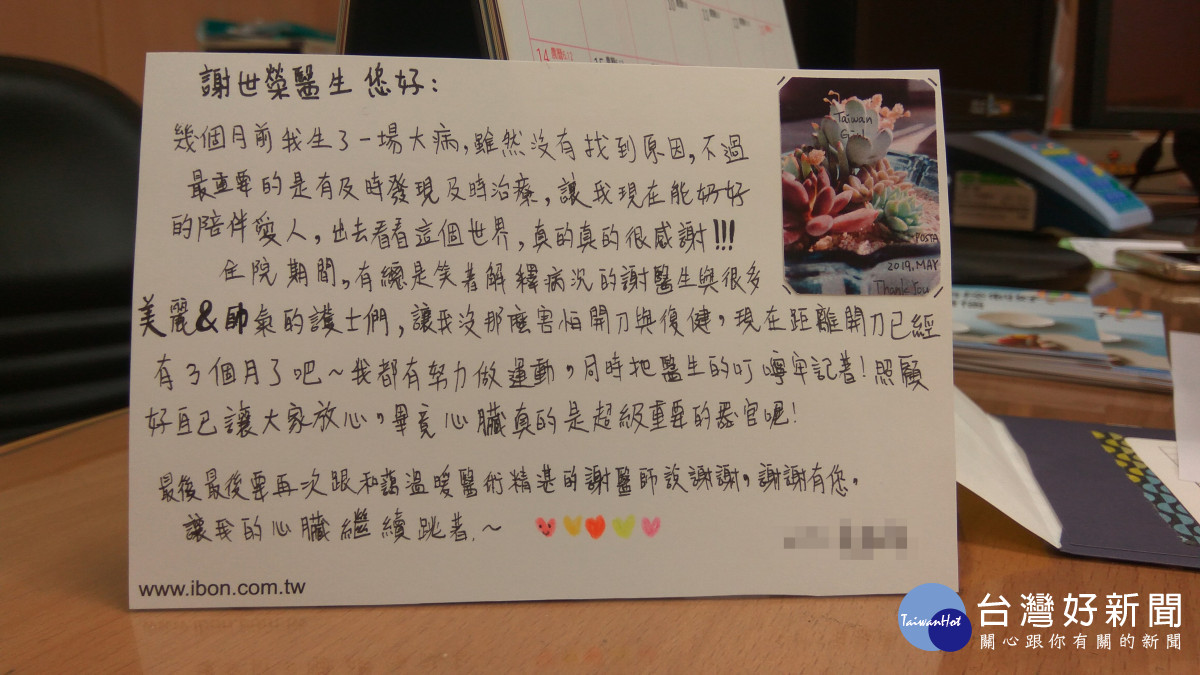 謝世榮醫生 您好:
幾個月前我生了一場大病,雖然沒有找到原因,不過
最重要的是有及時發現及時治療,讓我現在能好好
的陪伴愛人,出去看看這個世界,真的真的很感謝!!!
住院期間,有總是笑著解釋病況的謝醫生與很多
美麗&帥氣的護士們,讓我沒那麼害怕開刀與復健,現在距離開刀已經
有3個月了吧~我都有努力做運動,同時把醫生的叮嚀牢記著!照顧
好自己讓大家放心,畢竟心臟真的是超級重要的器官呢!
最後最後要再次跟和藹溫暖醫術精湛的謝醫師說謝謝,謝謝有您,
讓我的心臟繼續跳著.~
www.ibon.com.tw
Taiwan
Girl
POSTA
2019.MAY
Thank You
14
TaiwanHot
台灣好新聞
關心跟你有關的新聞